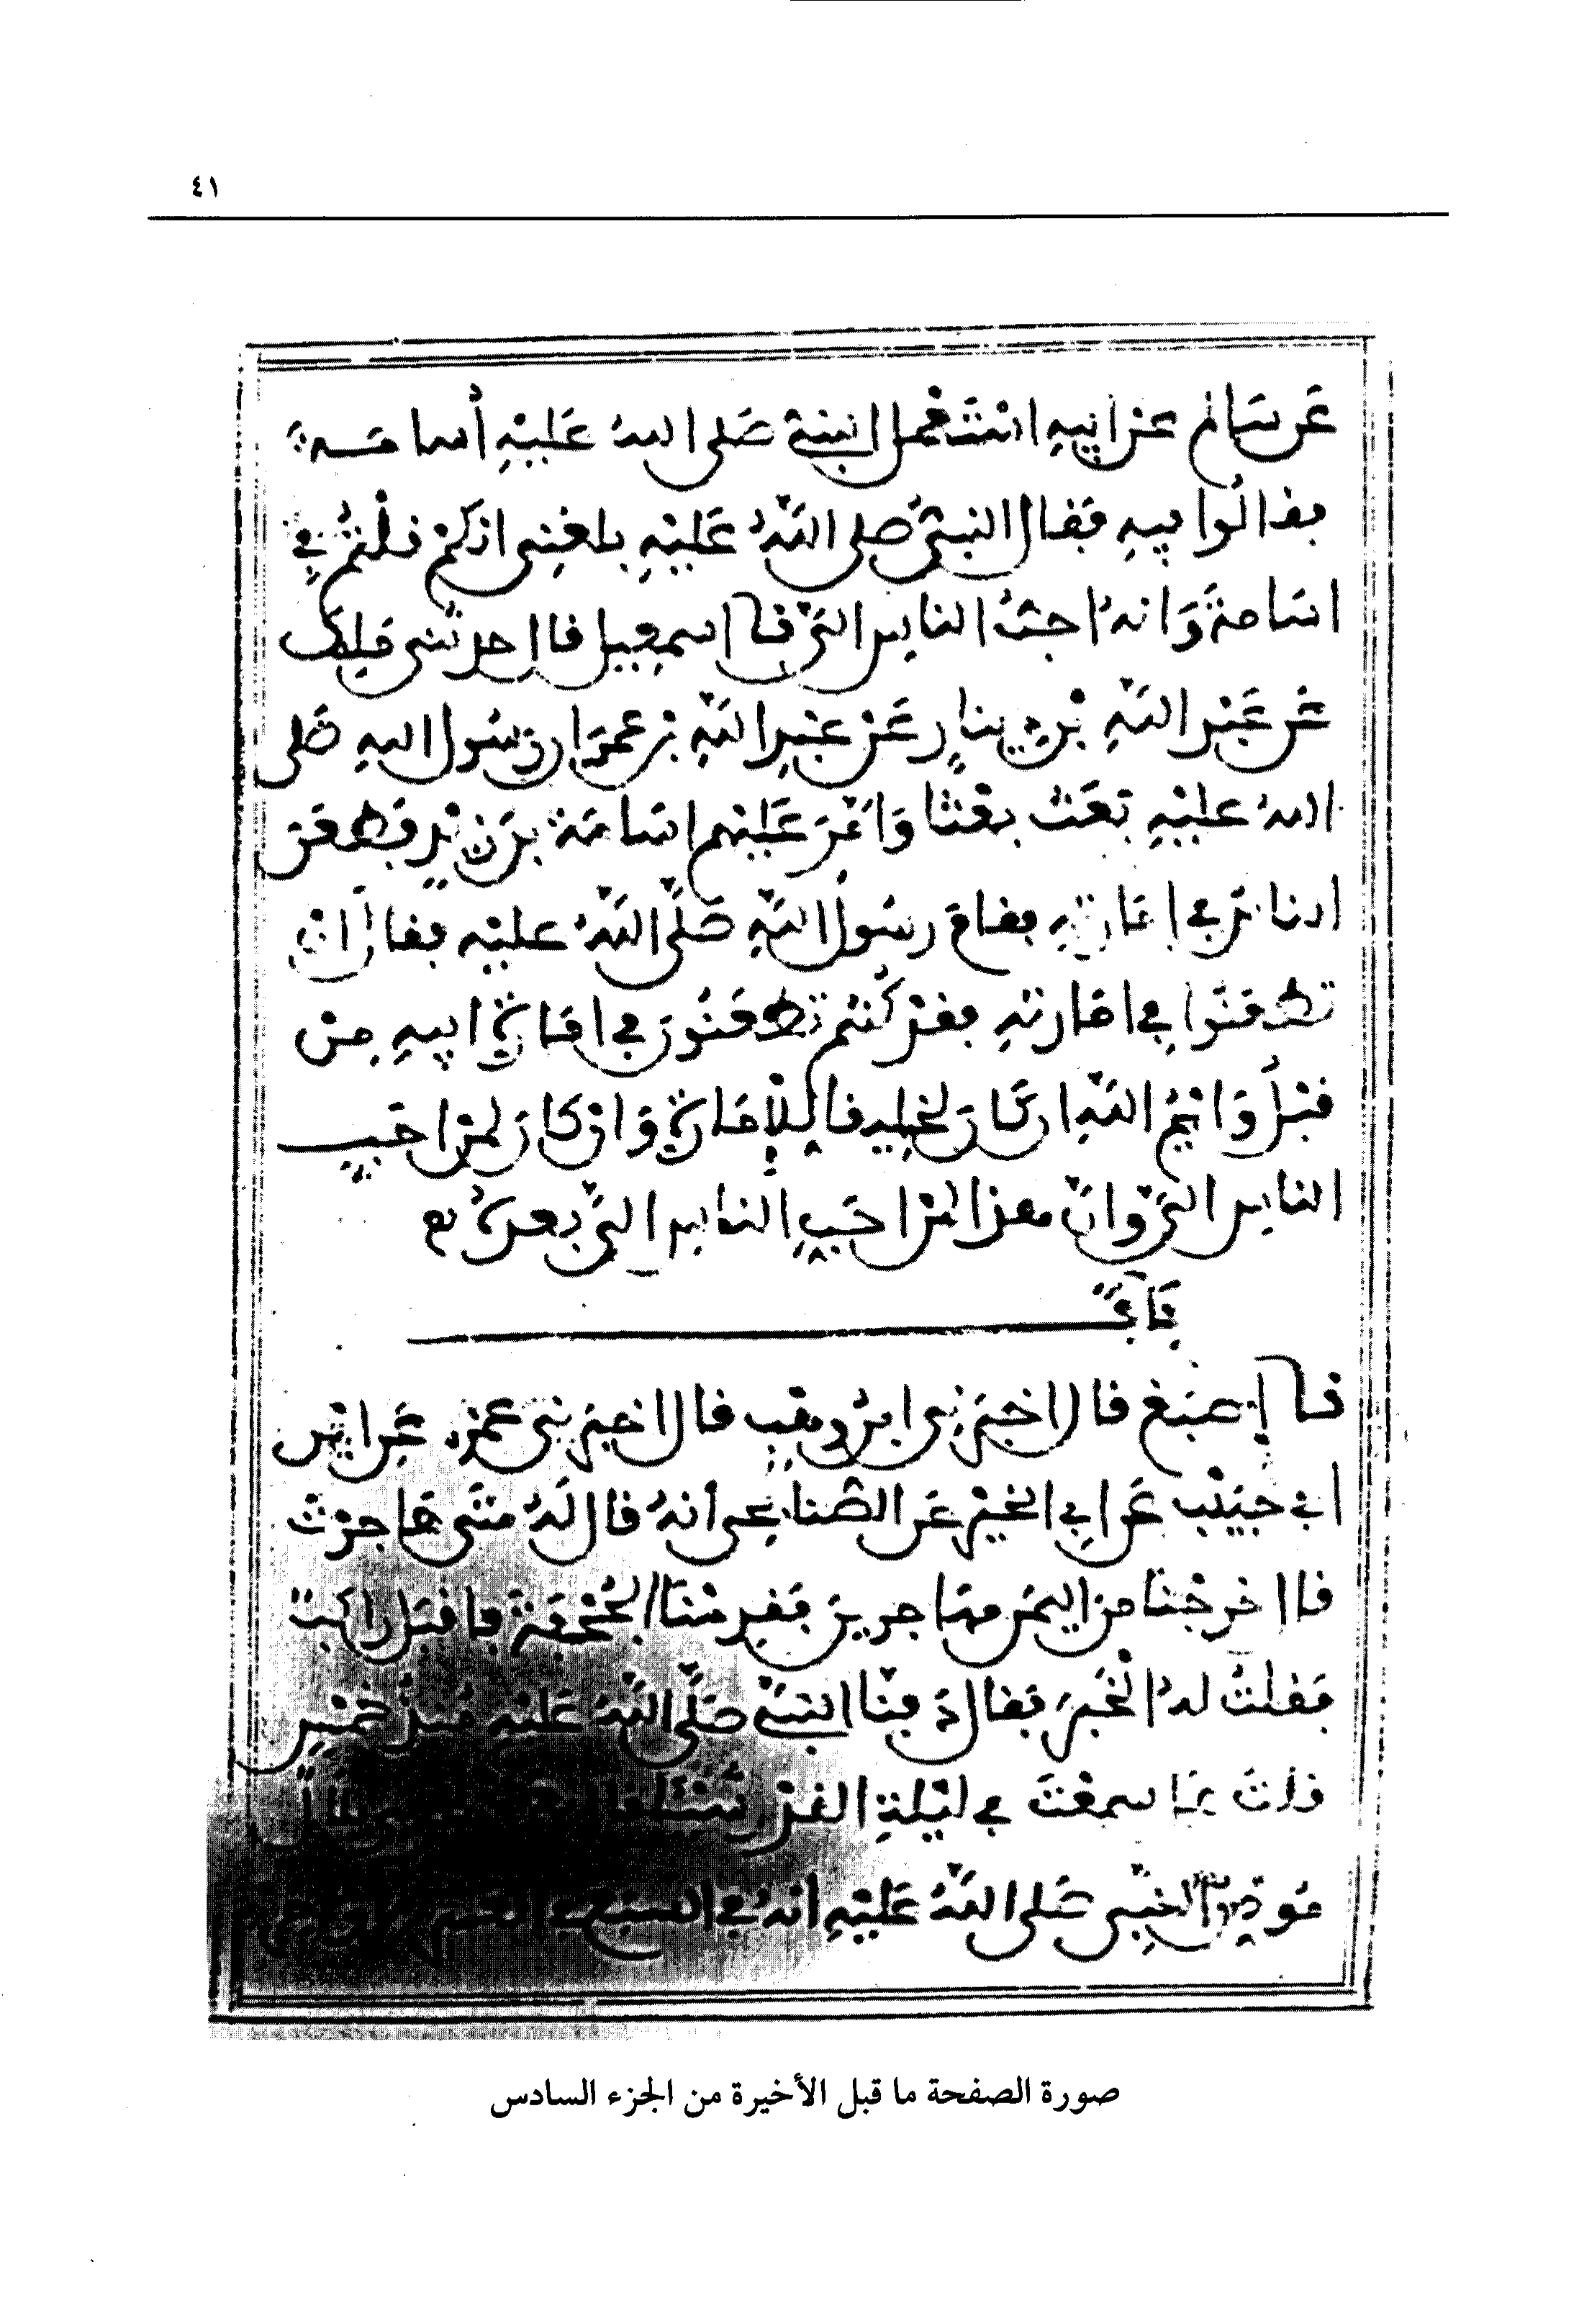 ٤١
عَن سَالِم عَن أبِيهِ اسْتَعْمَلَ النبيُّ صَلى اللهُ عَلَيْهِ أُسامَـة
فقالُوا فِيهِ فَقَالَ النبيُّ صَلى اللَّهُ عَلَيْهِ بلغنِى انكُمْ قلْتُمْ في
اسَامةَ وَانهُ احَبُّ الناسِ اليَّ نا اسمعِيل قال حدثنى مَلِك
عَن عَبْدِ اللَّهِ بْن دِينارٍ عَنْ عَبْدِ اللَّهِ بن عمَرَ ان رسُول اللهِ صَلى
اللهُ عليْهِ بَعَث بعْثا وَامَّرَ عَلَيْهم اسَامَةَ بن زيْد فطَعَن
الناسُ في إمَارتِهِ فقام رسُولُ اللَّهِ صَلَّى اللَّهُ عليْهِ فقال ان
تطعَنُوا في امَارتهِ فقدْ كُنْتم تطعَنُونَ في امَارَةِ ابيهِ مِنْ
قبْلُ وَايْمُ اللَّهِ ان كَانَ لخلِيقا لِلْإمَارَةِ وَانْ كانَ لمنْ احَبِّ
الناسِ اليَّ وانَّ هذا لمنْ احَبِّ الناسِ اليَّ بعدَهُ
بَابٌ
نا اصبَغ قال اخبَرَنى ابنُ وهْب قال اخبرَنى عمرو عَن ابْن
أبى حبِيْب عَن ابى الخيْر عَن الصُّنابِحى أنهُ قال لَهُ مَتَى هَاجرْتَ
قال خرجْنا من اليمَن مهَاجرينَ فَقدِمْنا الجُحْفَةَ فاقبَل راكبٌ
فَقلتُ لهُ الخبَرَ فقال دَفنَّا النبيَّ صَلَّى اللَّهُ عَلَيْهِ مُنذُ خمْسٍ
قلتُ هَل سمعْتَ في ليْلةِ القدْرِ شيْئا قال
مُوذنُ النبيِّ صَلى اللَّهُ عَلَيْهِ أنهُ في السبْع في العشر
صورة الصفحة ما قبل الأخيرة من الجزء السادس